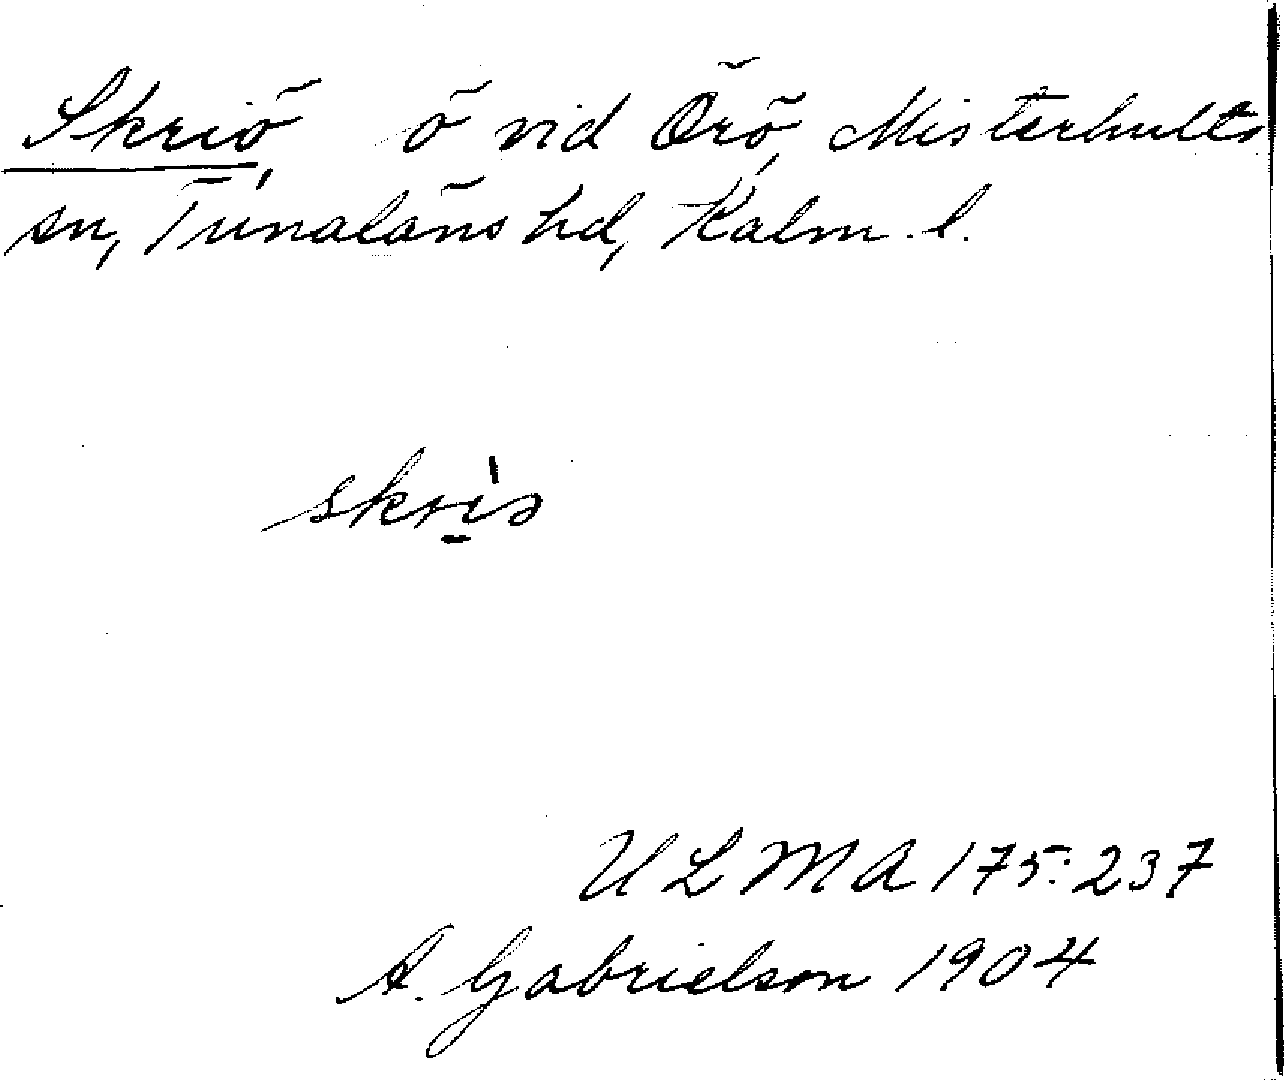 Skriö, ö vid Örö, Misterhults
sn, Tunaläns hd, Kalm. l.
skriə
ULMA 175:237
A. Gabrielson 1904